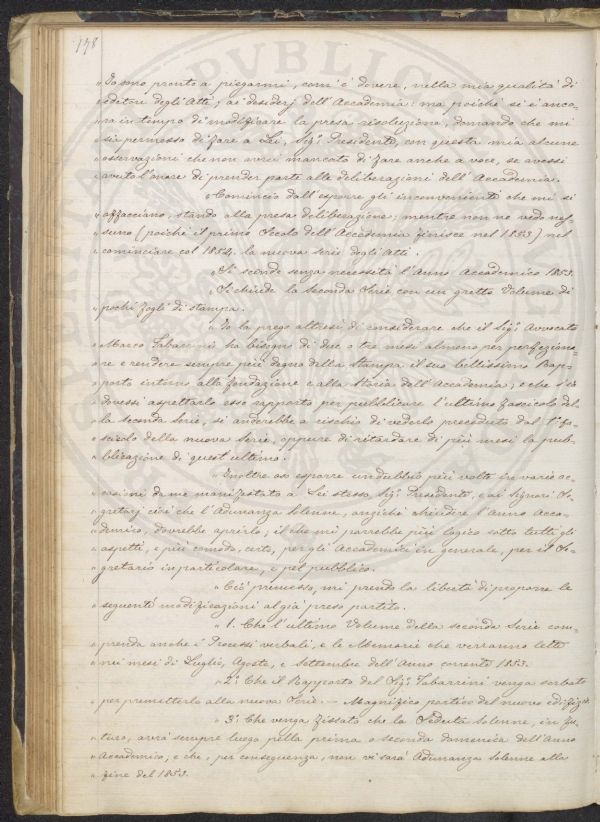 138
" Io sono pronto a piegarmi, com'è dovere, nella mia qualità di
" editore degli Atti, ai desiderj dell'Accademia: ma poichè si è anco=
" ra in tempo di modificare la presa risoluzione, domando che mi
" sia permesso di fare a Lei, Sigr. Presidente, con questa mia alcune
" osservazioni che non avrei mancato di fare anche a voce, se avessi
" avuto l'onore di prender parte alle deliberazioni dell'Accademia.
" Comincio dall'esporre gl'inconvenienti che mi si
" affacciano, stando alla presa deliberazione; mentre non ne vedo nes=
" suno (poichè il primo Secolo dell'Accademia finisce nel 1853) nel
" cominciare col 1854. la nuova serie degli Atti.
" Si scinde senza necessità l'Anno Accademico 1853.
" Si chiude la Seconda Serie con un gretto Volume di
" pochi fogli di stampa.
" Io la prego altresì di considerare che il Sigr. Avvocato
" Marco Tabarrini ha bisogno di due o tre mesi almeno per perfeziona=
" re e rendere sempre più degno della stampa il suo bellissimo Rap=
" porto intorno alla fondazione e alla Storia dell'Accademia; e che s'io
" dovessi aspettarlo esso rapporto per pubblicare l'ultimo fascicolo del=
" la seconda Serie, si anderebbe a rischio di vederlo preceduto dal 1° fa=
" scicolo della nuova Serie, oppure di ritardare di più mesi la pub=
" blicazione di quest'ultimo.
" Inoltre oso esporre un dubbio più volte in varie oc=
" casioni da me manifestato a Lei stesso, Sigr. Presidente, e ai Signori Se=
" gretarj cioè che l'Adunanza Solenne, anzichè chiudere l'anno Acca=
" demico, dovrebbe aprirlo; il che mi parrebbe più logico sotto tutti gli
" aspetti, e più comodo, certo, per gli Accademici in generale, per il Se=
" gretario in particolare, e pel pubblico.
" Ciò premesso, mi prendo la libertà di proporre le
" seguenti modificazioni al già preso partito.
" 1. Che l'ultimo Volume della seconda Serie com=
" prenda anche i Processi verbali, e le Memorie che verranno lette
" nei mesi di Luglio, Agosto, e Settembre dell'Anno corrente 1853.
" 2° Che il Rapporto del Sigr. Tabarrini venga serbato
" per premetterlo alla nuova Serie. — Magnifico portico del nuovo edifizio.
" 3° Che venga fissato che la Seduta Solenne, in fu=
" turo, avrà sempre luogo nella prima o seconda domenica dell'Anno
" Accademico, e che, per conseguenza, non vi sarà Adunanza Solenne alla
" fine del 1853.